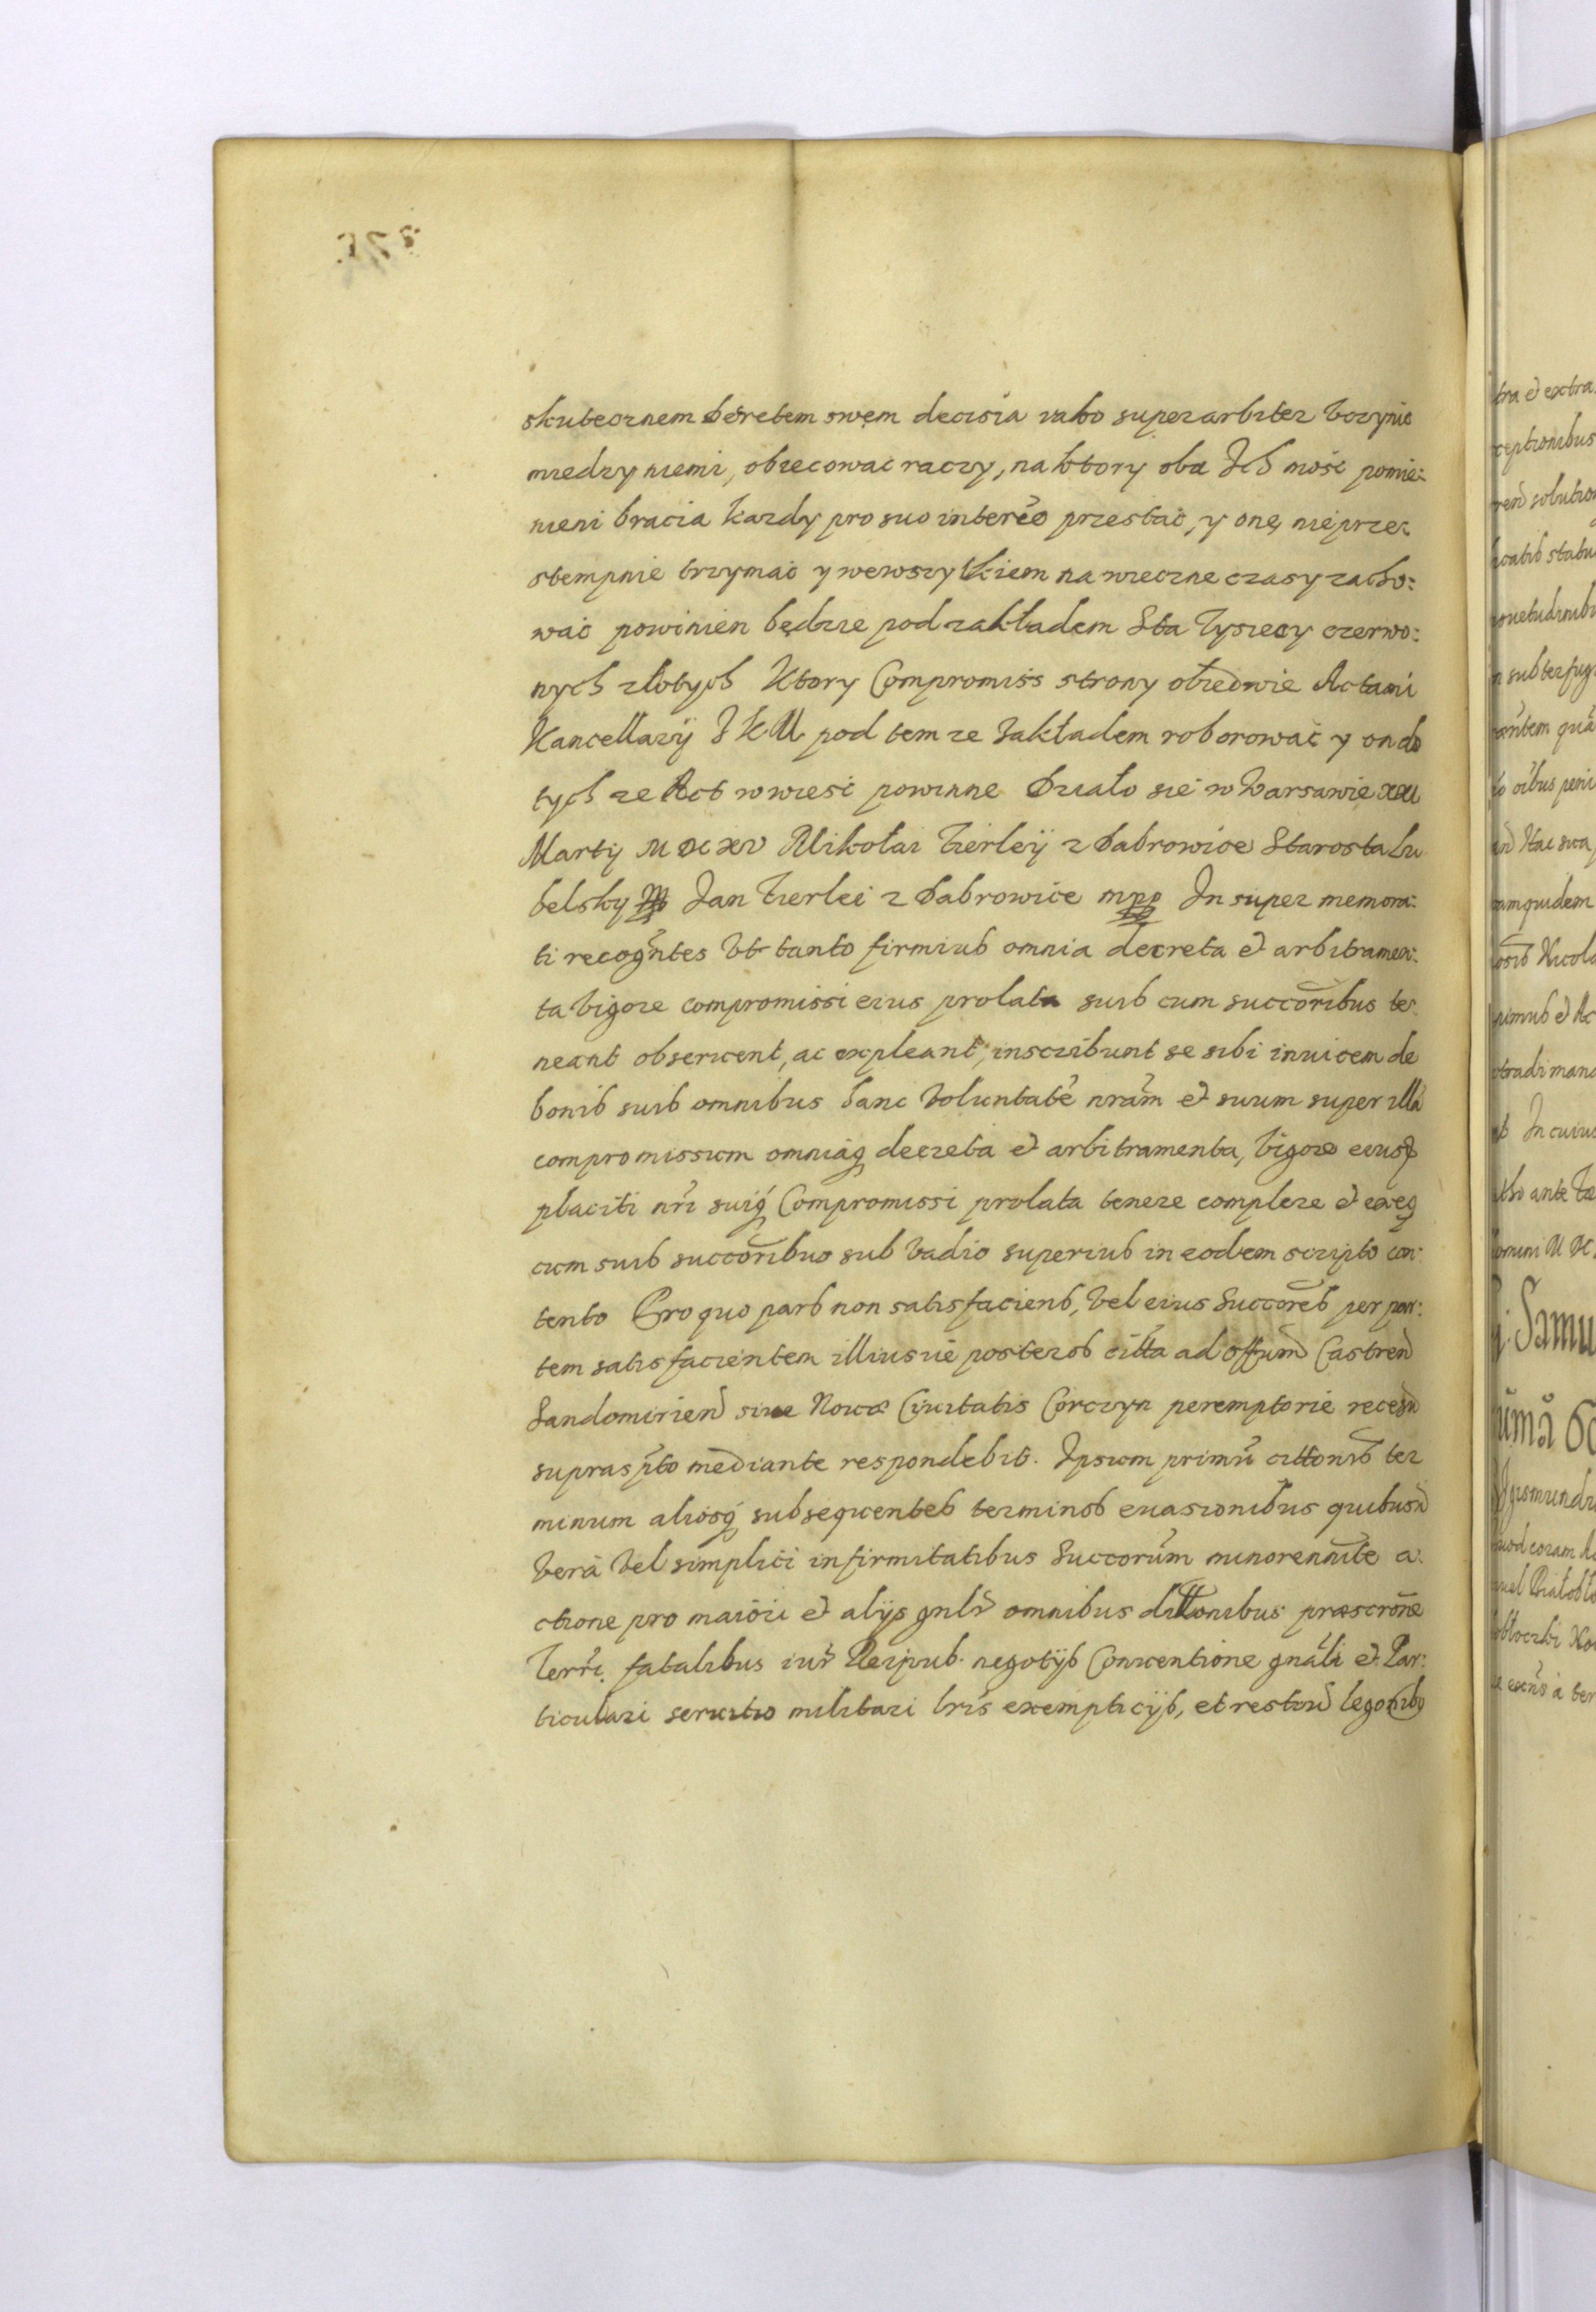 skutecznem dekretem swęm decisia iako superarbiter Vczynic
miedzy niemi, obiecowac raczy, na ktory oba Ich mość pomie:
nieni bracia kazdy pro suo interēe przestać, y onę nieprze:
stempnie trzymać y wewszytkiem na wieczne czasy zacho:
wać powinien będzie pod zakładem Sta Tysiecy czerwo:
nych złotych Ktory Compromiss strony obiedwie Actami
Kancellaryj J K M pod tem ze Zakładem roborowač y on do
tych ze Act wwiesć powinne Działo sie w Warsawie
Martij M DC XV Mikołai Fierleij z Dabrowice Starosta Lu
belsky mp Jan Fierlei z Dabrowice mpp In super memora:
ti recogn̄tes Vt tanto firmius omnia decreta et arbitramen:
ta Vigore compromissi eius prolata suis cum succōribus te:
neant obseruent, ac expleant, inscribunt se sibi inuicem de
bonis suis omnibus hanc Voluntatē nrām et suum super illā
compromissum omniaq decreta et arbitramenta, Vigore eiusd
placiti nr̄i suiq Compromissi prolata tenere complere et exeq
cum suis succōribus sub Vadio superius in eodem scripto con:
tento Pro quo pars non satisfaciens, Vel eius Succōres per par:
tem satisfacientem illiusue posteros citta ad offum Castren
Sandomirien siue Nouæ Ciuitatis Corczyn peremptorie recess
suprasp̄to mediante respondebit. Ipsum primū cittonis ter
minum aliosq subsequentes terminos euasionibus quibusu
Vera Vel simplici infirmitatibus Succorūm minorennite a:
ctione pro maiōri et alijs gnlr omnibus dittonibus præscrōne
Terrī fatalibus iur Reipub. negotijs Conuentione gnāli et Par:
ticulari seruitio militari lrīs exempticijs, et reston legonibo